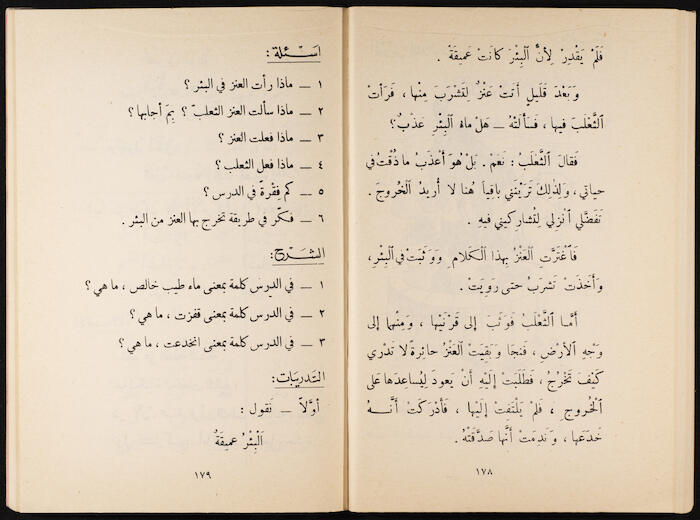 فَلَمْ يَقْدِرْ لِأَنَّ ٱلْبِئْرَ كَانَتْ عَمِيقَةً .
وَبَعْدَ قَلِيلٍ أَتَتْ عَنْزٌ لِتَشْرَبَ مِنْهَا ، فَرَأَتْ
ٱلثَّعْلَبَ فِيهَا ، فَسَأَلَتْهُ — هَلْ مَاءُ ٱلْبِئْرِ عَذْبٌ ؟
فَقَالَ ٱلثَّعْلَبُ : نَعَمْ . بَلْ هُوَ أَعْذَبُ مَا ذُقْتُ فِي
حَيَاتِي ، وَلِذٰلِكَ تَرَيْنَنِي بَاقِياً هُنَا لَا أُرِيدُ ٱلْخُرُوجَ .
تَفَضَّلِي ٱنْزِلِي لِتُشَارِكِينِي فِيهِ .
فَٱغْتَرَّتِ ٱلْعَنْزُ بِهٰذَا ٱلْكَلَامِ وَوَثَبَتْ فِي ٱلْبِئْرِ ،
وَأَخَذَتْ تَشْرَبُ حَتَّى رَوِيَتْ .
أَمَّا ٱلثَّعْلَبُ فَوَثَبَ إِلَى قَرْنَيْهَا ، وَمِنْهُمَا إِلَى
وَجْهِ ٱلْأَرْضِ ، فَنَجَا وَبَقِيَتْ ٱلْعَنْزُ حَائِرَةً لَا تَدْرِي
كَيْفَ تَخْرُجُ ، فَطَلَبَتْ إِلَيْهِ أَنْ يَعُودَ لِيُسَاعِدَهَا عَلَى
ٱلْخُرُوجِ ، فَلَمْ يَلْتَفِتْ إِلَيْهَا ، فَأَدْرَكَتْ أَنَّهُ
خَدَعَهَا ، وَنَدِمَتْ أَنَّهَا صَدَّقَتْهُ .
١٧٨
اسْئلة :
١ — ماذا رأت العنز في البئر ؟
٢ — ماذا سألت العنز الثعلبَ ؟ بِمَ أجابها ؟
٣ — ماذا فعلت العنز ؟
٤ — ماذا فعل الثعلب ؟
٥ — كم فِقْرةً في الدرس ؟
٦ — فكّر في طريقة تخرج بها العنز من البئر .
الشرح :
١ — في الدرس كلمة بمعنى ماء طيب خالص ، ما هي ؟
٢ — في الدرس كلمة بمعنى قفزت ، ما هي ؟
٣ — في الدرس كلمة بمعنى انخدعت ، ما هي ؟
التدريبات :
أوّلاً — نَقول :
ٱلْبِئْرُ عميقةٌ
١٧٩